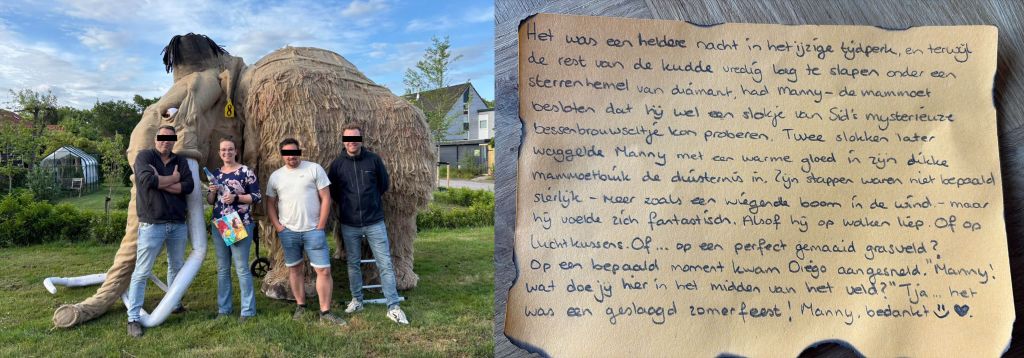 Het was een heldere nacht in het ijzige tijdperk, en terwijl
de rest van de kudde vredig lag te slapen onder een
sterrenhemel van diamant, had Manny - de mammoet
besloten dat hij wel een slokje van Sid's mysterieuze
bessenbrouwseltje kon proberen. Twee slokken later
waggelde Manny met een warme gloed in zijn dikke
mammoetbuik de duisternis in. Zijn stappen waren niet bepaald
sierlijk - meer zoals een wiegende boom in de wind - maar
hij voelde zich fantastisch. Alsof hij op wolken liep. Of op
luchtkussens. Of... op een perfect gemaaid grasveld?
Op een bepaald moment kwam Diego aangesneld. "Manny!
wat doe jij hier in het midden van het veld?" Tja... het
was een geslaagd zomerfeest! Manny, bedankt ☺ ♥.